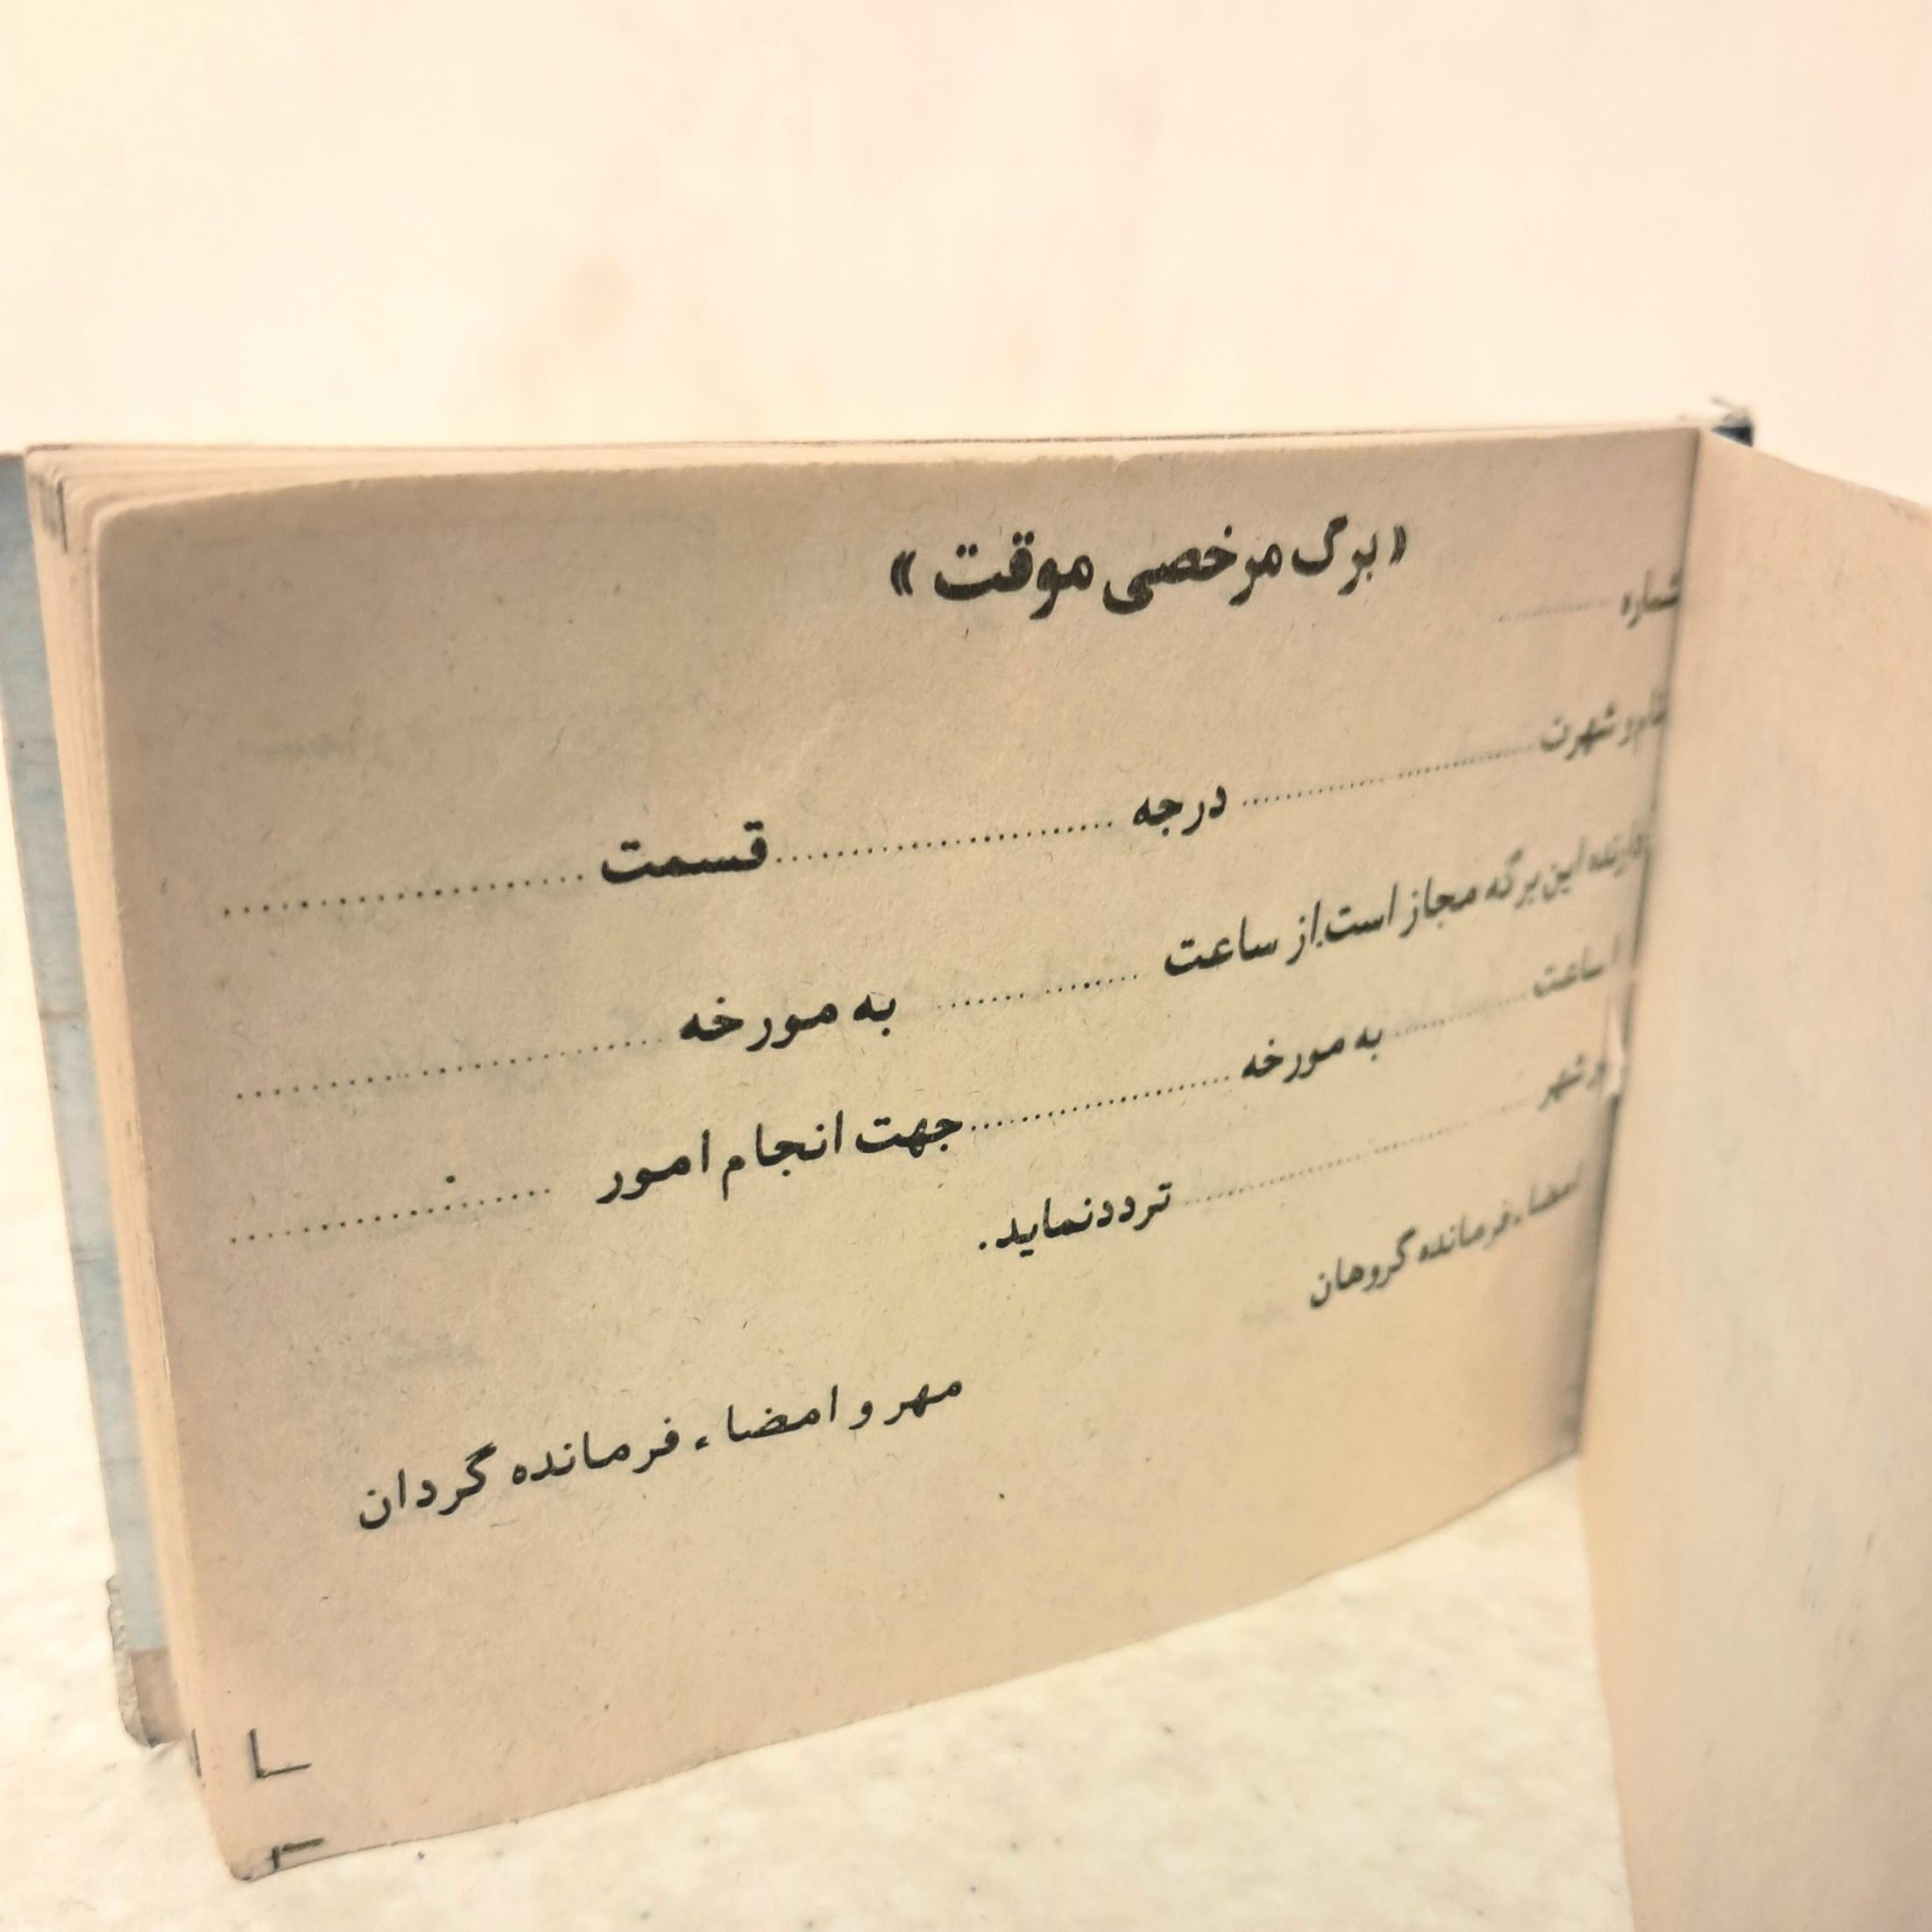 «برگ مرخصی موقت»
شماره ............
نام و شهرت ........................ درجه ........................ قسمت ........................
دارنده این برگه مجاز است از ساعت ................ به مورخه ........................
ساعت ................ به مورخه ................ جهت انجام امور ........................
در شهر ........................ تردد نماید.
امضاء فرمانده گروهان
مهر و امضاء فرمانده گردان